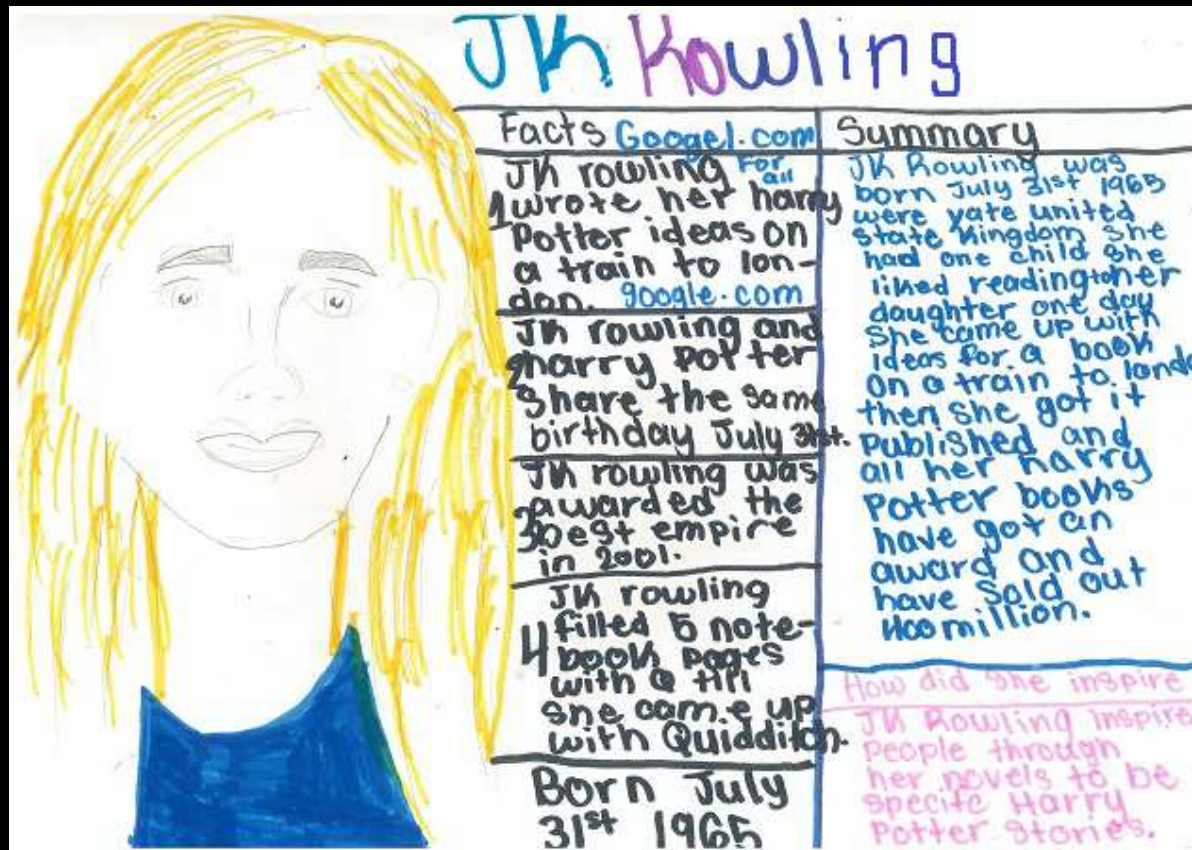 JK Rowling
Facts Googel.com
JK rowling For
all
1 wrote her harry
Potter ideas on
a train to lon-
don. google.com
JK rowling and
2 harry potter
share the same
birthday July 31st.
JK rowling was
3 awarded the
best empire
in 2001.
JK rowling
4 filled 5 note-
book pages
with Q till
she came up
with Quidditch.
Born July
31st 1965
Summary
JK Rowling was
born July 31st 1965
were yate united
state Kingdom she
had one child she
liked reading to her
daughter one day
she came up with
ideas for a book
on a train to londo
then she got it
published and
all her harry
Potter books
have got an
award and
have sold out
400 million.
How did she inspire
JK Rowling inspire
people through
her novels to be
specife Harry
Potter stories.